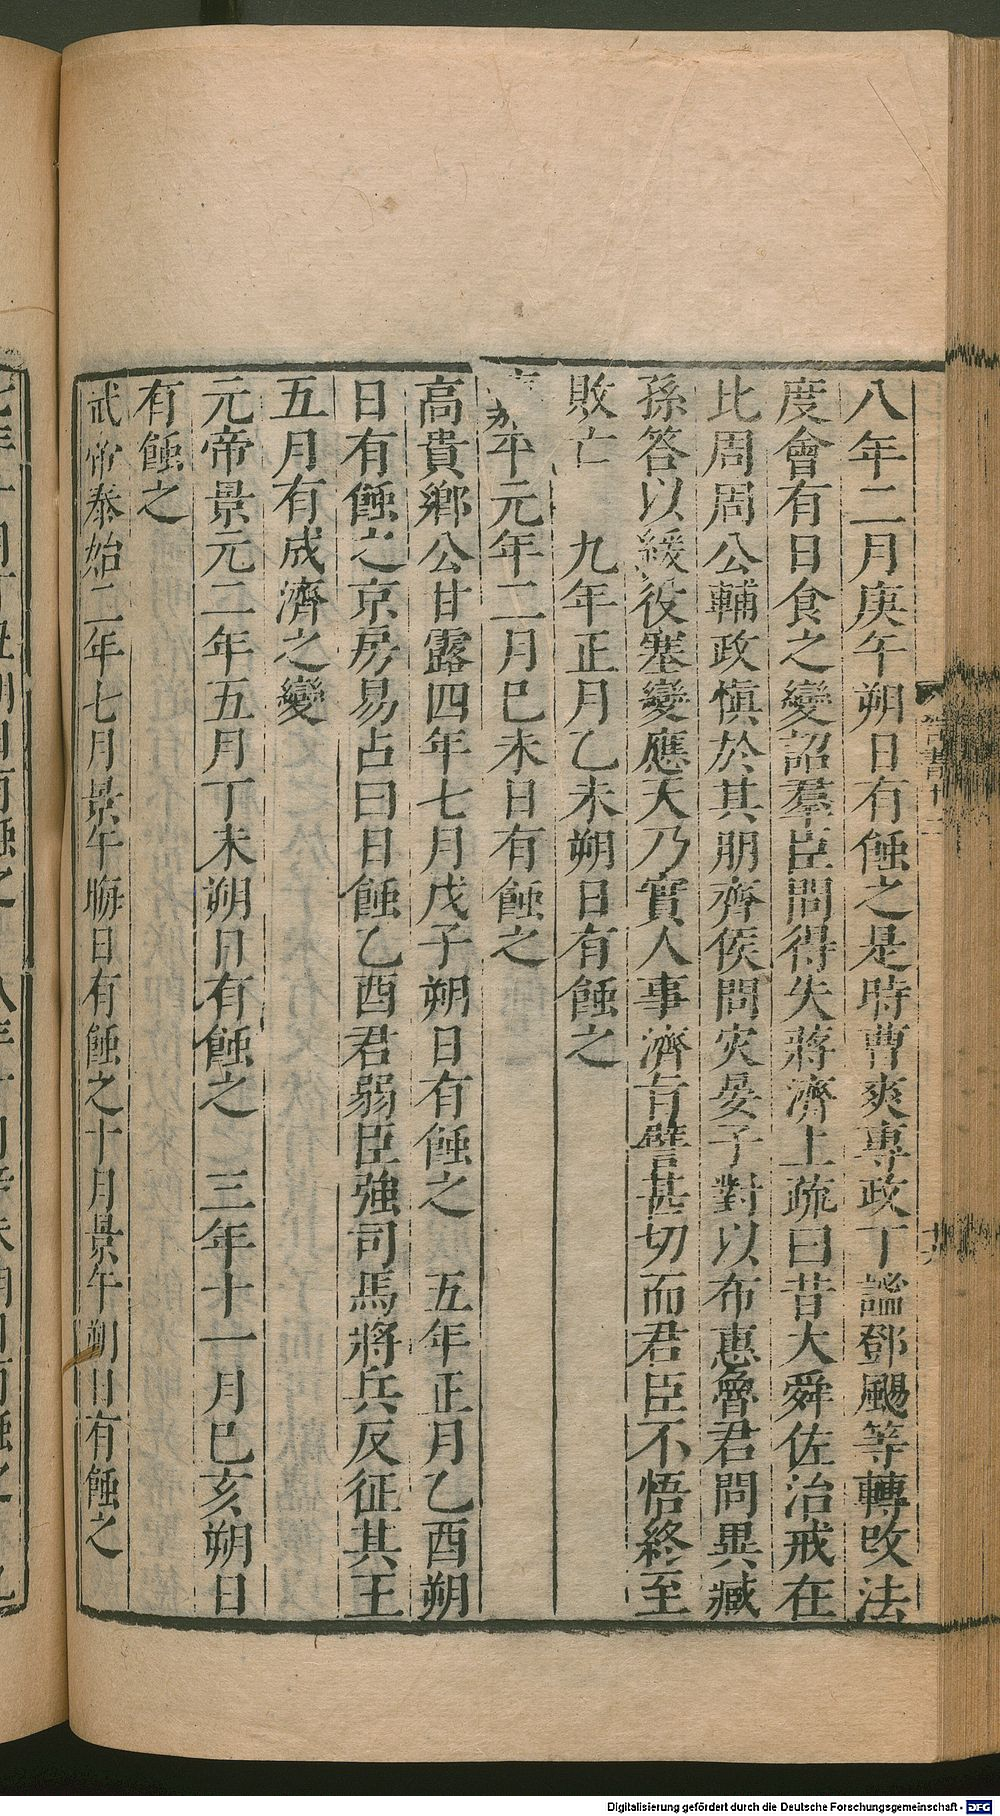 八年二月庚午朔日有蝕之是時曹爽專政丁謐鄧颺等轉改法
度會有日食之變詔羣臣問得失蔣濟上疏曰昔大舜佐治戒在
比周周公輔政慎於其朋齊侯問灾晏子對以布惠魯君問異臧
孫答以緩役塞變應天乃實人事濟旨譬甚切而君臣不悟終至
敗亡　九年正月乙未朔日有蝕之
嘉平元年二月巳未日有蝕之
高貴鄉公甘露四年七月戊子朔日有蝕之　五年正月乙酉朔
日有蝕之京房易占曰日蝕乙酉君弱臣強司馬將兵反征其王
五月有成濟之變
元帝景元二年五月丁未朔日有蝕之　三年十一月巳亥朔日
有蝕之
武帝泰始二年七月景午晦日有蝕之十月景午朔日有蝕之
晉書十二
廿六
Digitalisierung gefördert durch die Deutsche Forschungsgemeinschaft - DFG